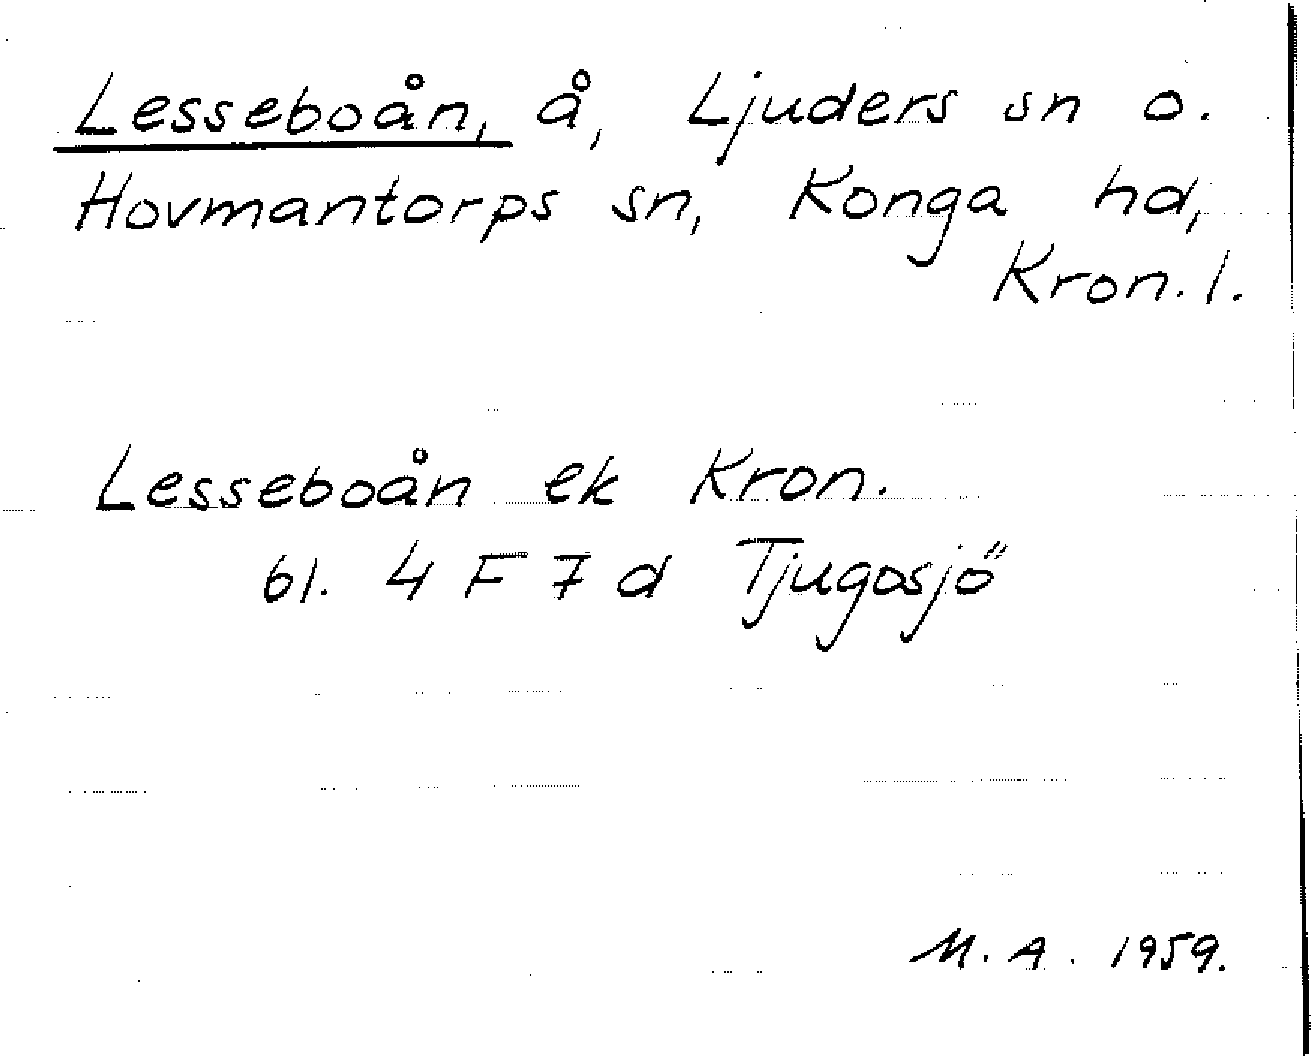 Lesseboån, å, Ljuders sn o.
Hovmantorps sn, Konga hd,
Kron. l.
Lesseboån ek Kron.
bl. 4 F 7 d Tjugosjö
M. A. 1959.